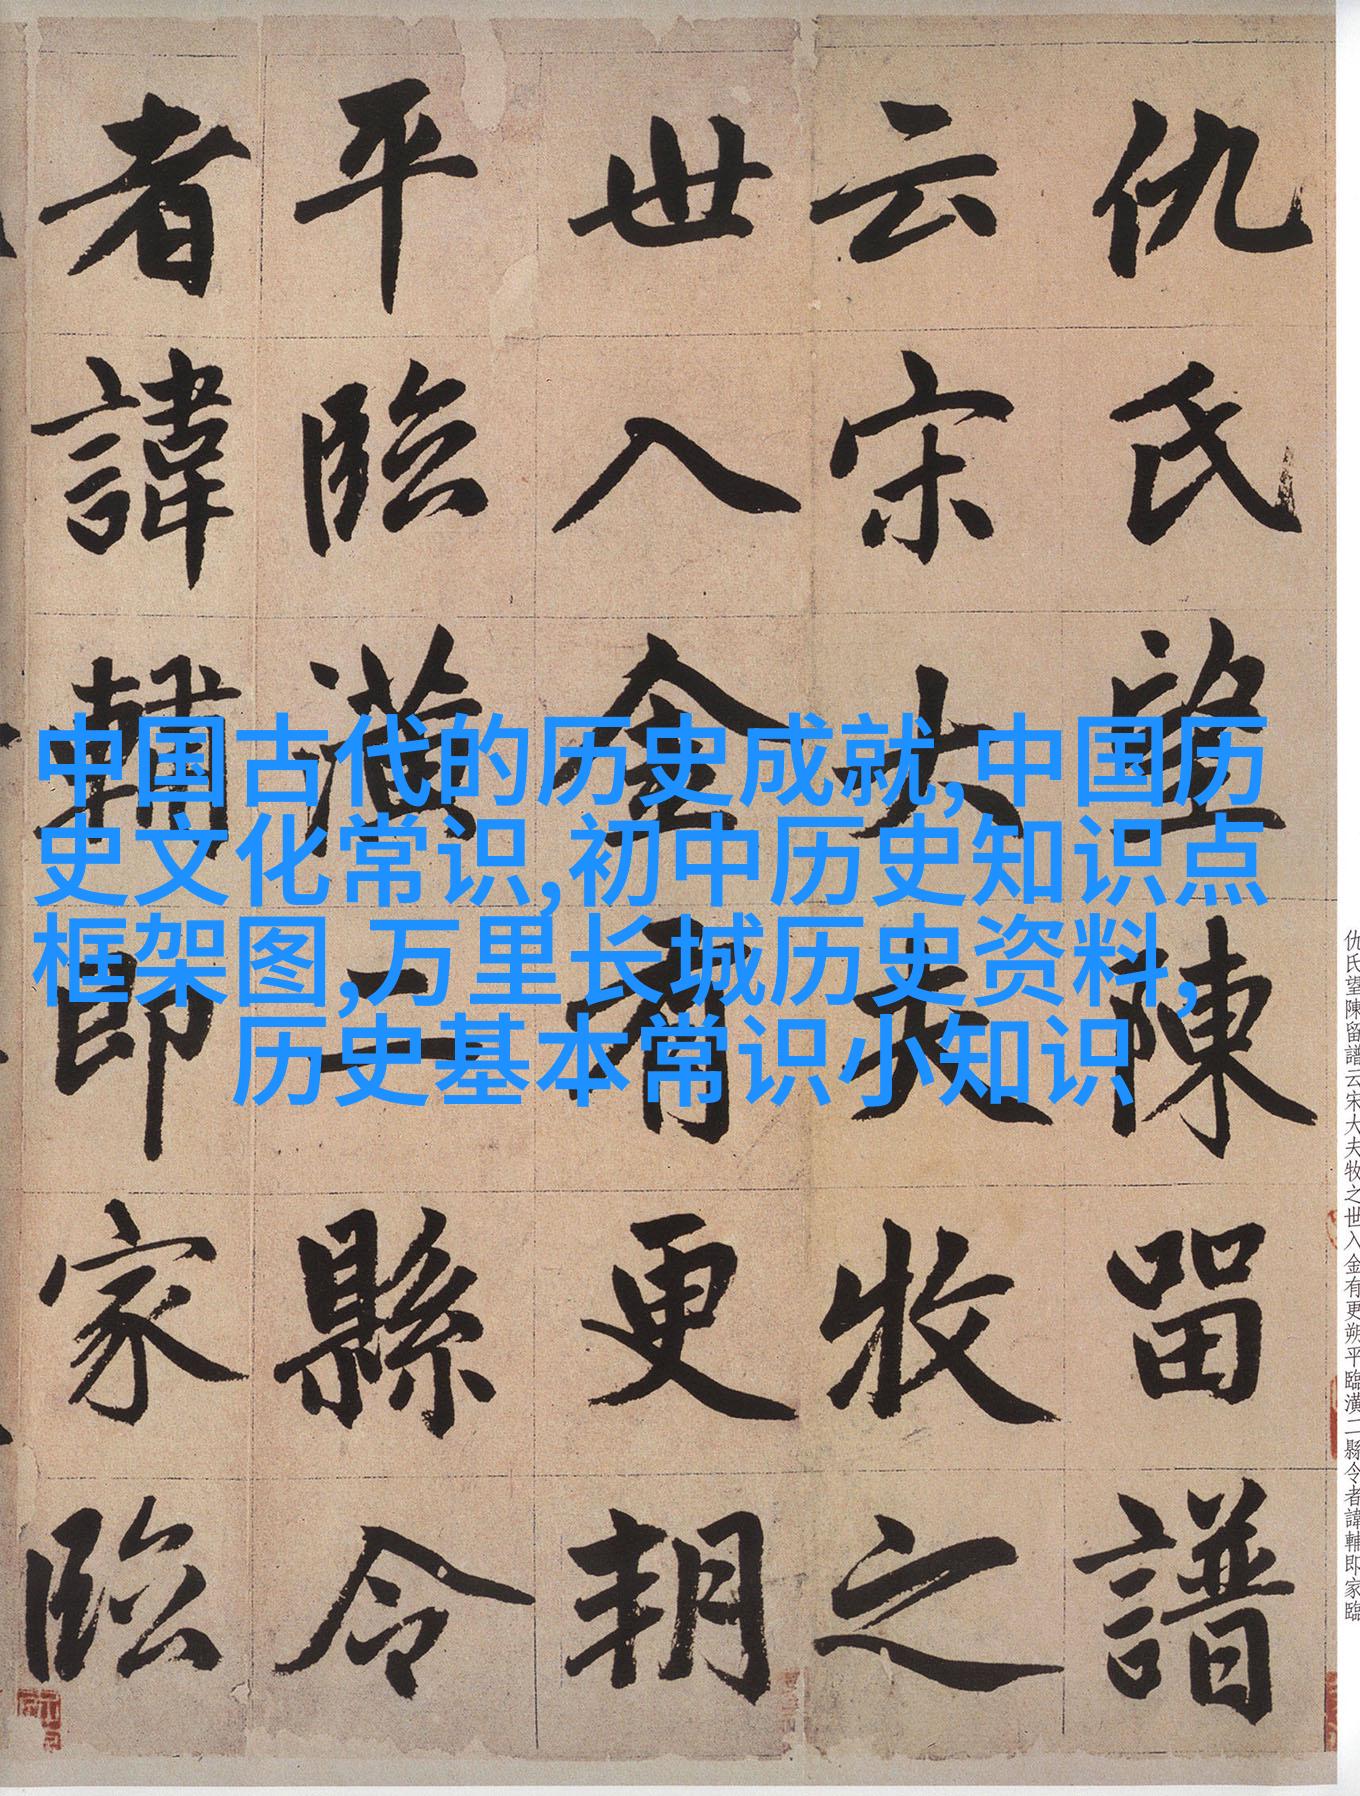 仇氏望陳留譜
云宋大夫牧之
世入金有更朔
平臨潢二縣令
者諱輔即家臨
中国古代的历史成就,中国历
史文化常识,初中历史知识点
框架图,万里长城历史资料,
历史基本常识小知识
仇氏望陳留譜云宋大夫牧之世入金有更朔平臨潢二縣令者諱輔即家臨